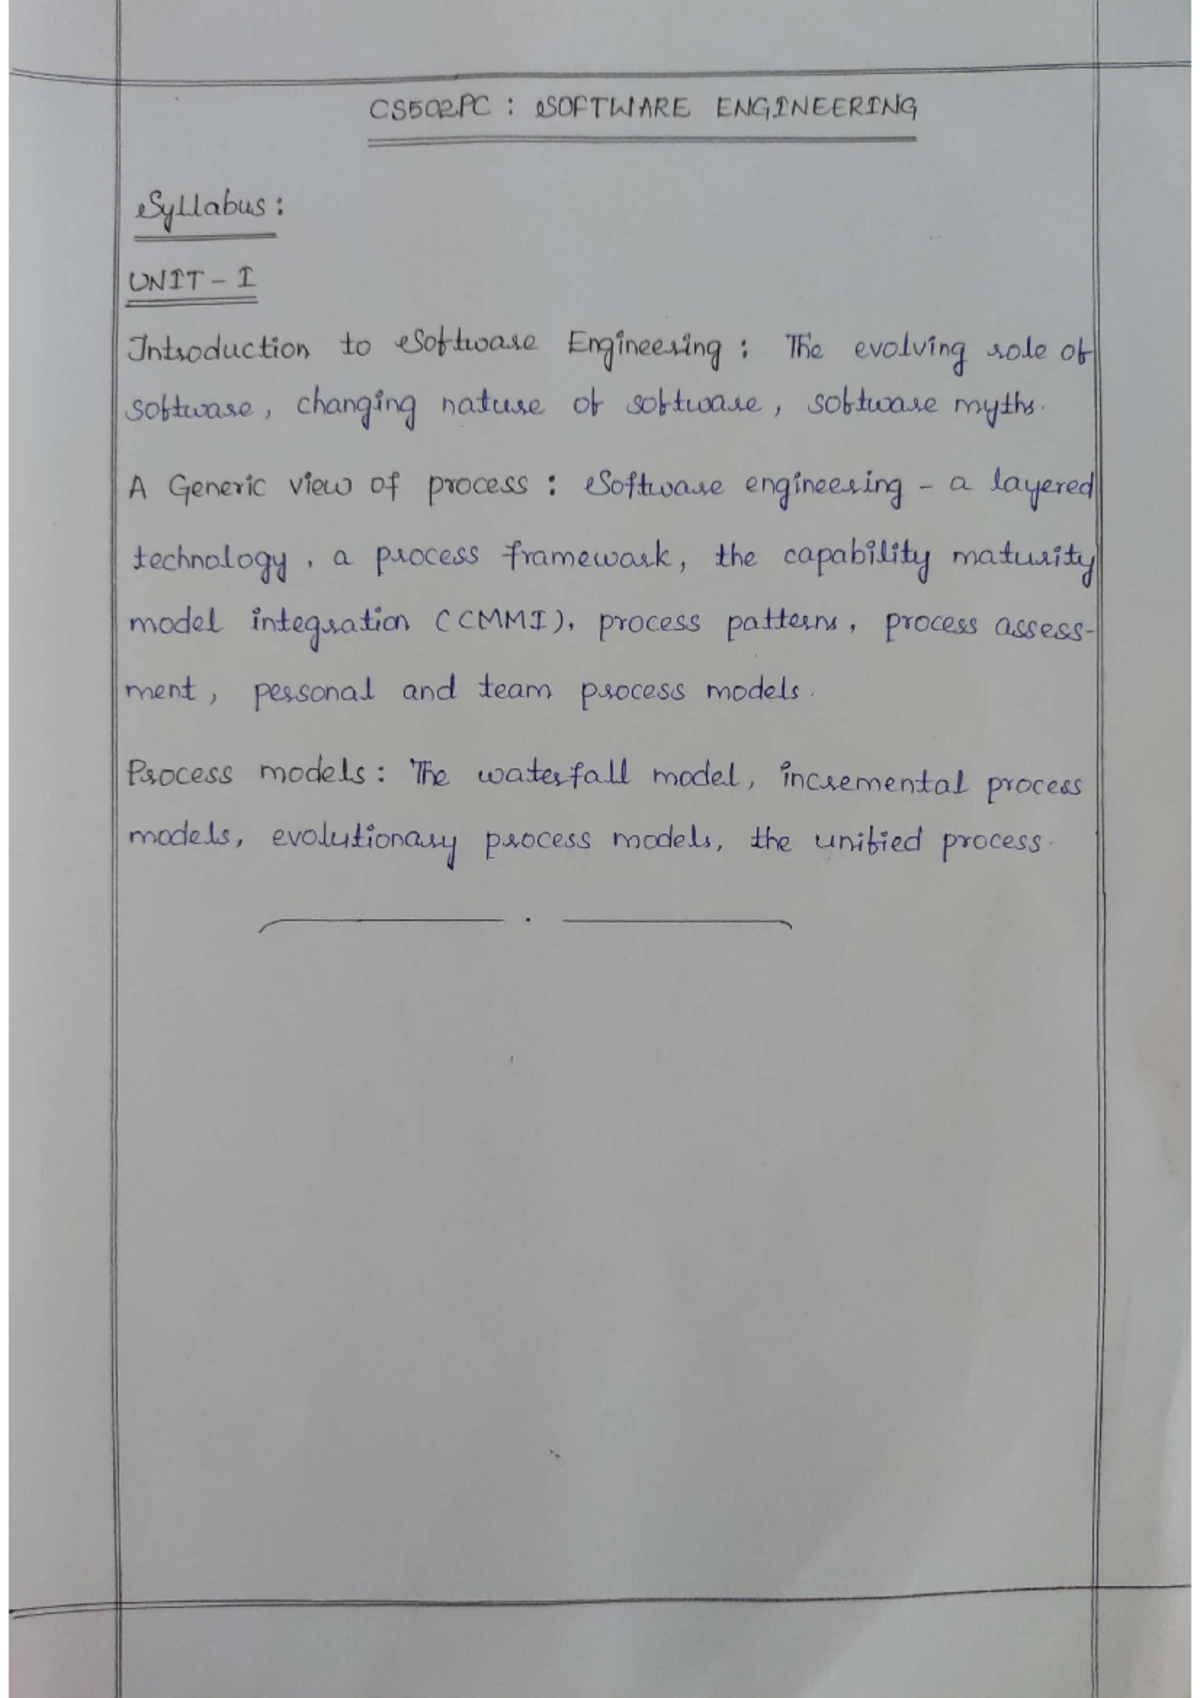 CS502PC : SOFTWARE ENGINEERING
Syllabus :
UNIT - I
Introduction to Software Engineering : The evolving role of
software, changing nature of software, software myths.
A Generic view of process : Software engineering - a layered
technology, a process framework, the capability maturity
model integration (CMMI), process patterns, process assess-
ment, personal and team process models.
Process models : The waterfall model, incremental process
models, evolutionary process models, the unified process.